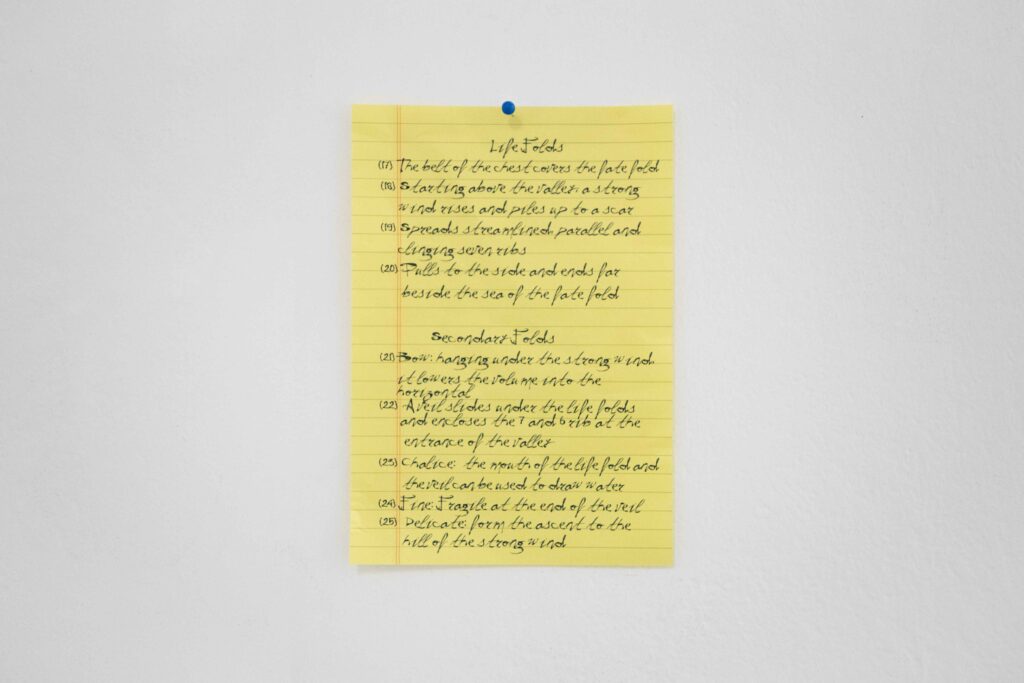 Life Folds
(17) The belt of the chest covers the fate fold
(18) Starting above the valley: a strong
wind rises and piles up to a scar
(19) Spreads streamlined, parallel and
clinging seven ribs
(20) Pulls to the side and ends far
beside the sea of the fate fold
Secondary Folds
(21) Bow: hanging under the strong wind
it lowers the volume into the
horizontal
(22) A veil slides under the life folds
and encloses the 7 and 6 rib at the
entrance of the valley
(23) Chalice: the mouth of the life fold and
the veil can be used to draw water
(24) Fine: Fragile at the end of the veil
(25) Delicate: form the ascent to the
hill of the strong wind